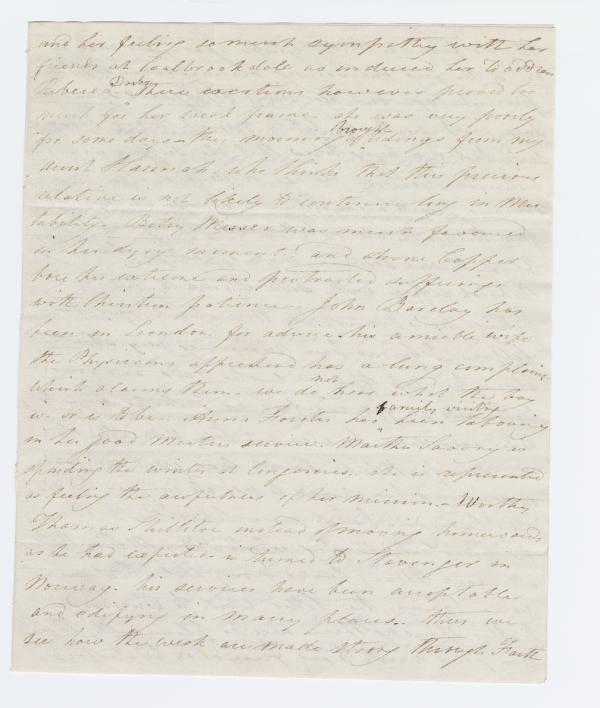 and her feeling so much sympathy with her
friends at Coalbrookdale as induced her to address
Rebecca Darby. These exertions however proved too
much for her weak frame. she was very poorly
for some days - this morning brought tidings from my
aunt Hannah who thinks that this precious
relative is not likely to continue long in Mu-
tability. Betsy was much favoured
in her dying moments and
bore his extreme and protracted sufferings
with Christian patience. John Barclay has
been in London for advice. his amiable wife
the Physicians apprehend has a lung complaint
which alarms them. we do not hear what the boy
is or is to be. Anna Forster has been family visiting labouring
in her good Masters service. Martha Savory is
spending the winter at Congenies. she is represented
as feeling the awfulness of her mission - Worthy
Thomas Shillitoe instead of moving homewards
as he had expected is turned to Stavenger in
Norway. his services have been acceptable
and edifying in many places. thus we
see how the weak are made strong through Faith